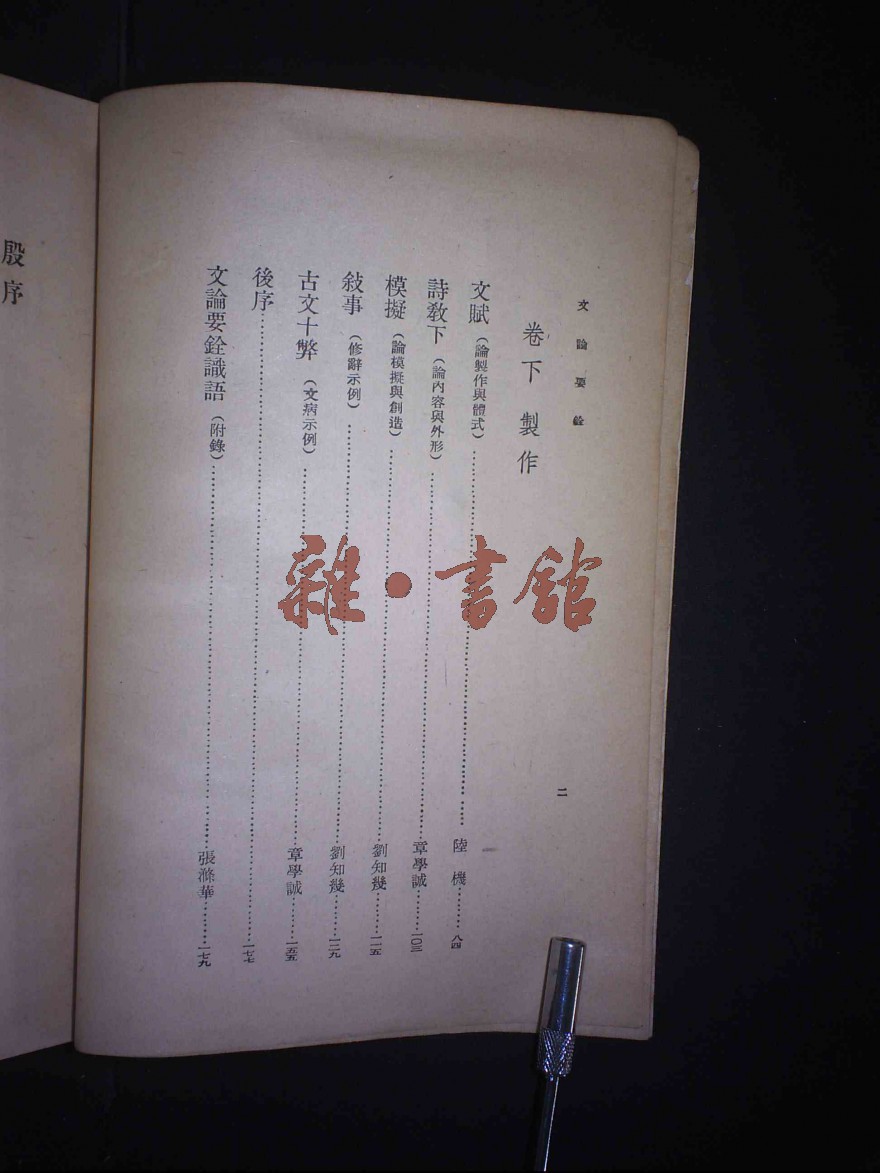 文論要詮
卷下 製作
文賦（論製作與體式）……陸機……八四
詩教下（論內容與外形）……章學誠……一〇三
模擬（論模擬與創造）……劉知幾……一一五
敍事（修辭示例）……劉知幾……一二九
古文十弊（文病示例）……章學誠……一五五
後序……一七七
文論要詮識語（附錄）……張滌華……一七九
二
殷序
雜·書館